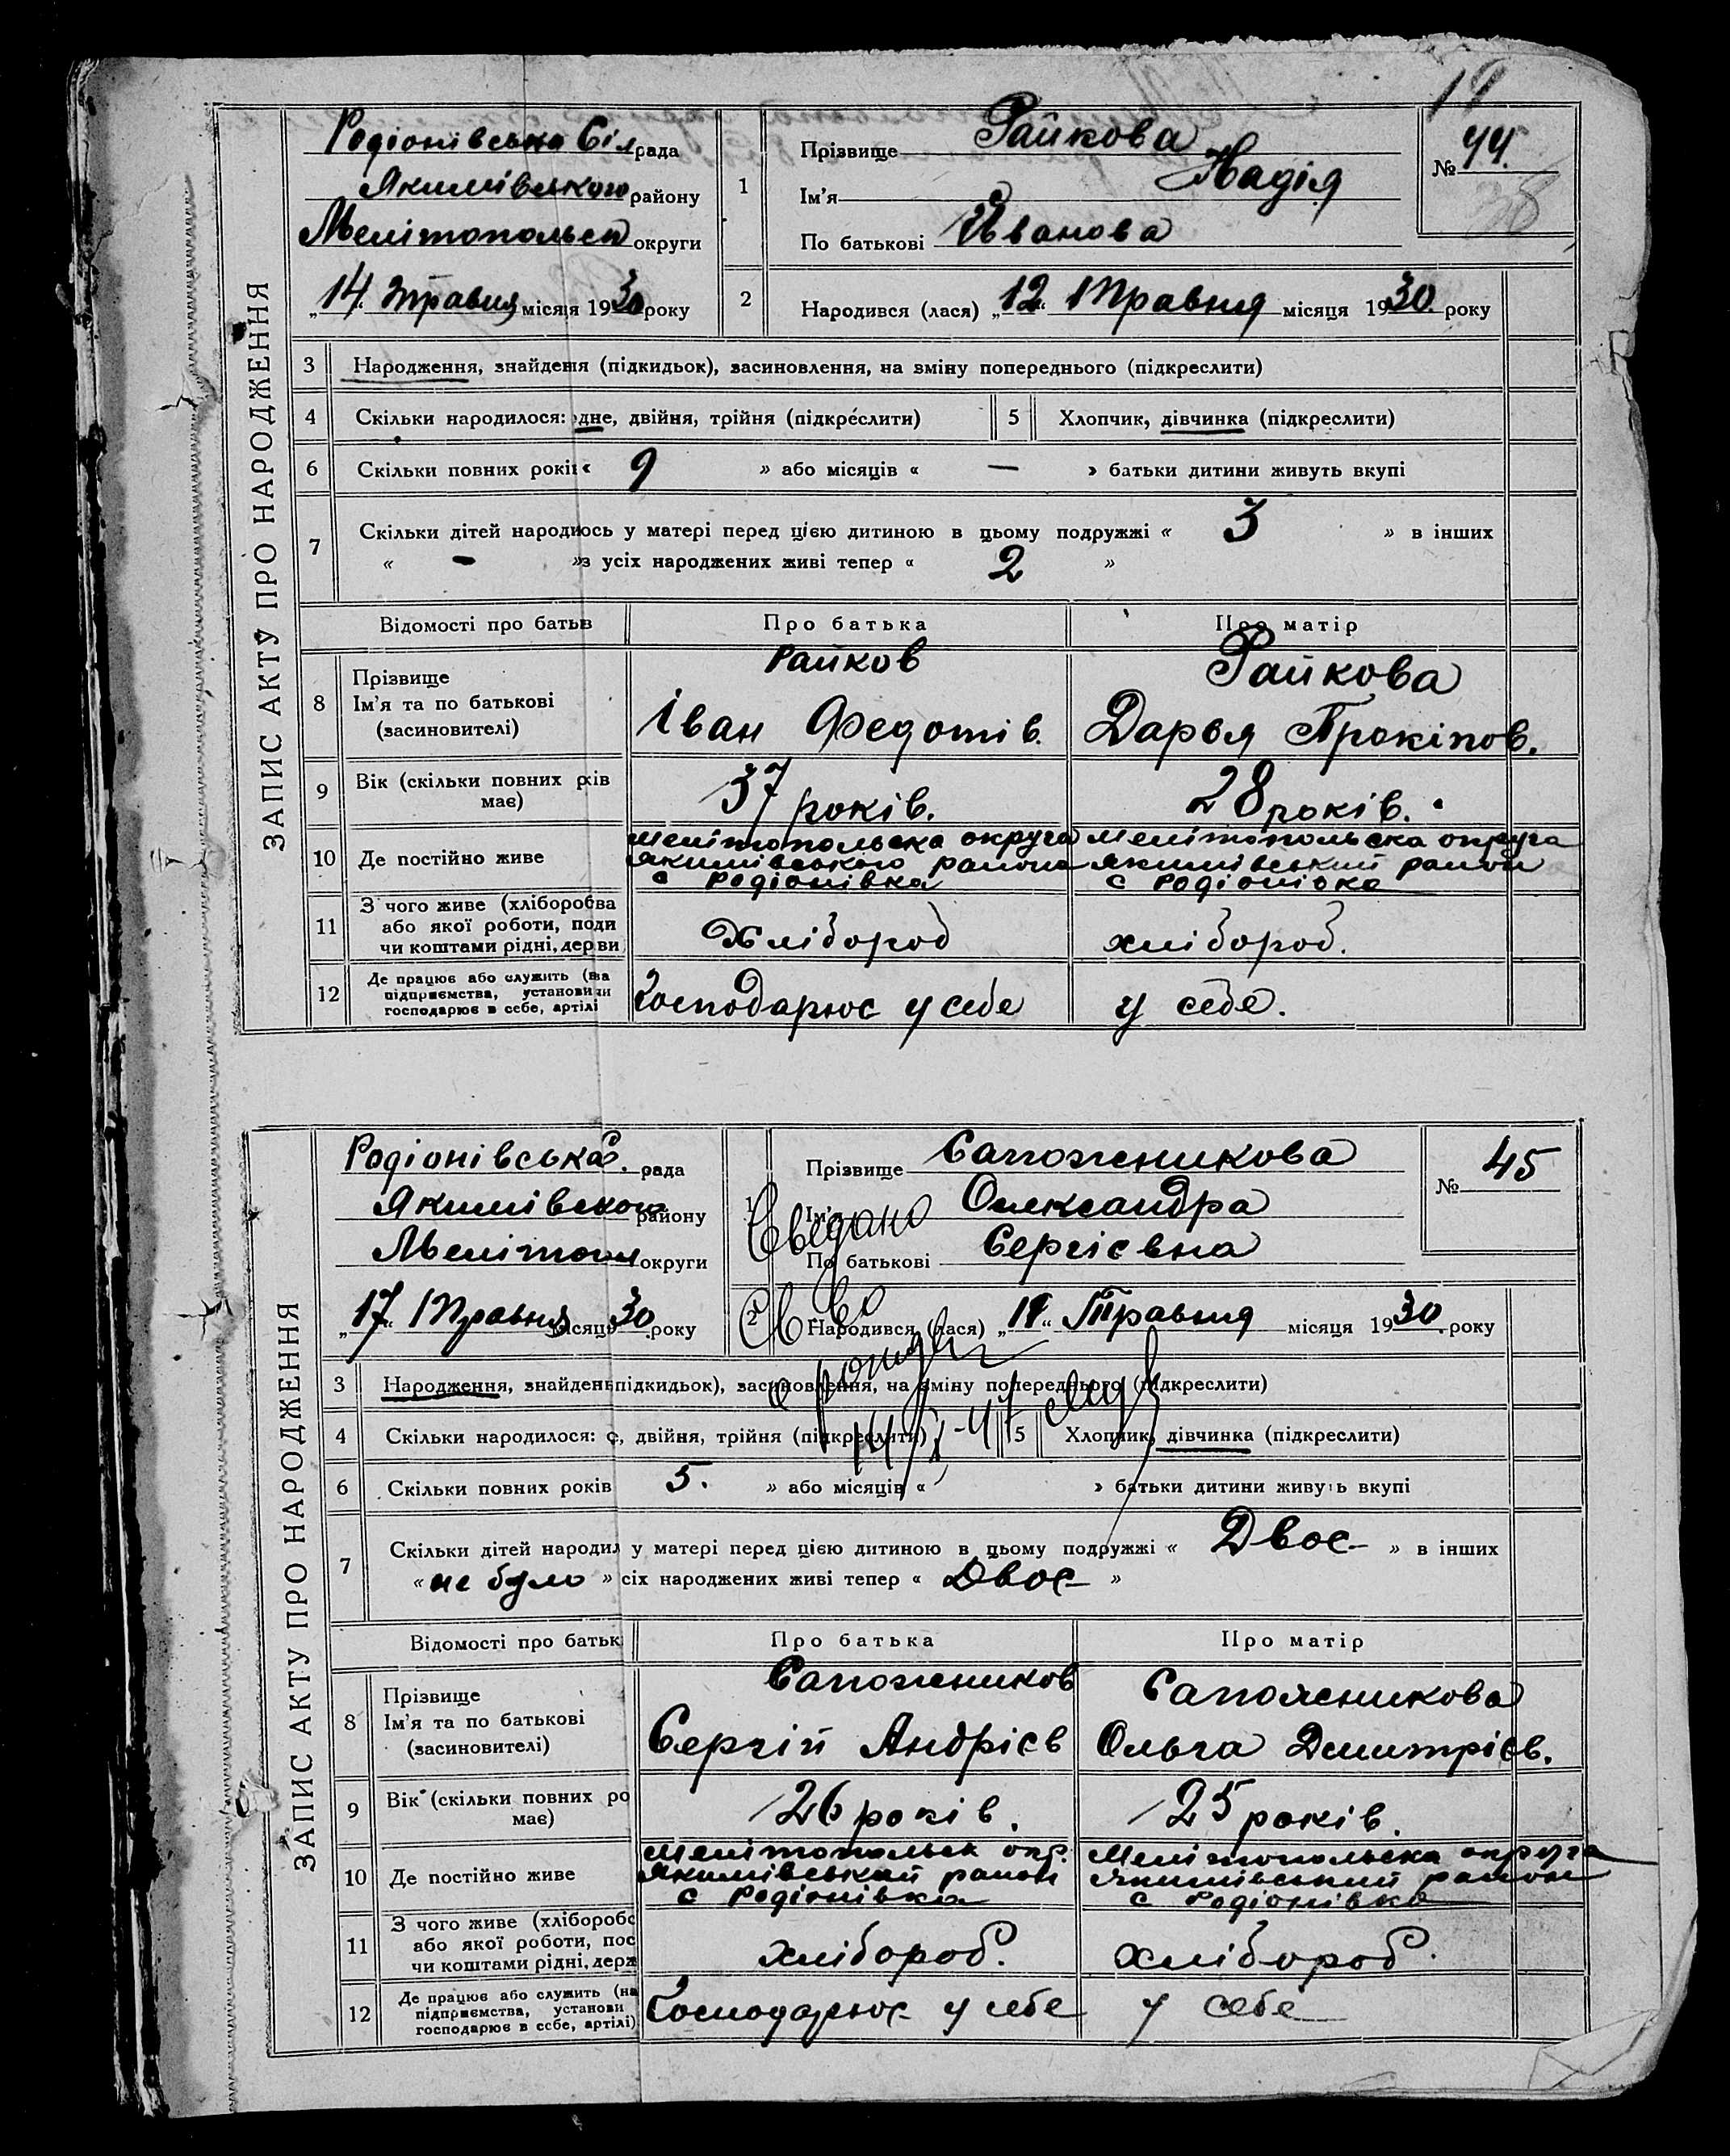 19
ЗАПИС АКТУ ПРО НАРОДЖЕННЯ
Родіонівська Сіл рада
Якимівського району
Мелітопольск округи
„14“ Травня місяця 1930 року
1
Прізвище Райкова
Ім'я Надія
По батькові Іванова
№ 44.
38
2
Народився (лася) „12“ Травня місяця 1930 року
3 Народження, знайдення (підкидьок), засиновлення, на зміну попереднього (підкреслити)
4 Скільки народилося: одне, двійня, трійня (підкреслити) 5 Хлопчик, дівчинка (підкреслити)
6 Скільки повних років « 9 » або місяців « — » батьки дитини живуть вкупі
7 Скільки дітей народилось у матері перед цією дитиною в цьому подружжі « 3 » в інших
« - » з усіх народжених живі тепер « 2 »
Відомості про батьків Про батька Про матір
8 Прізвище Ім'я та по батькові (засиновителі)
Райков
Іван Федотів.
Райкова
Дарья Прокіпов.
9 Вік (скільки повних років має) 37 років. 28 років.
10 Де постійно живе
Мелітопольска округа
Якимівського района
с Родіонівка
Мелітопольска округа
Якимівський район
с Родіонівка
11 З чого живе (хліборобства
або якої роботи, поди
чи коштами рідні, держави
Хлібороб
хлібороб.
12 Де працює або служить (на
підприємства, установи чи
господарює в себе, артілі
Господарює у себе
у себе.
ЗАПИС АКТУ ПРО НАРОДЖЕННЯ
Родіонівська С. рада
Якимівського району
Мелітопол округи
„17“ Травня місяця 30 року
Прізвище Сапожникова
Ім'я Олександра
По батькові Сергієвна
№ 45
2 Народився (лася) „11“ Травня місяця 1930 року
14/X-47
3 Народження, знайден підкидьок), засиновлення, на зміну попереднього (підкреслити)
4 Скільки народилося: е, двійня, трійня (підкреслити) 5 Хлопчик, дівчинка (підкреслити)
6 Скільки повних років 5. » або місяців « » батьки дитини живуть вкупі
7 Скільки дітей народил у матері перед цією дитиною в цьому подружжі « Двоє » в інших
« не було » сіх народжених живі тепер « Двоє »
Відомості про батьк Про батька Про матір
8 Прізвище Ім'я та по батькові (засиновителі)
Сапожников
Сергій Андрієв
Сапожникова
Ольга Дмитрієв.
9 Вік (скільки повних ро має) 26 років. 25 років.
10 Де постійно живе
Мелітопольск окр.
Якимівський район
с Родіонівка
Мелітопольска округа
Якимівський район
с Родіонівка
11 З чого живе (хліборобс
або якої роботи, пос
чи коштами рідні, держ
хлібороб.
хлібороб.
12 Де працює або служить (на
підприємства, установи
господарює в себе, артілі)
Господарює у себе
у себе